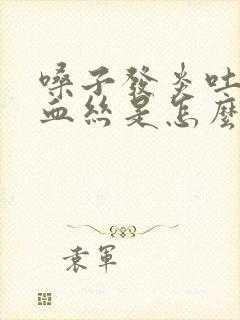 嗓子發炎吐
血絲是怎麼
袁軍